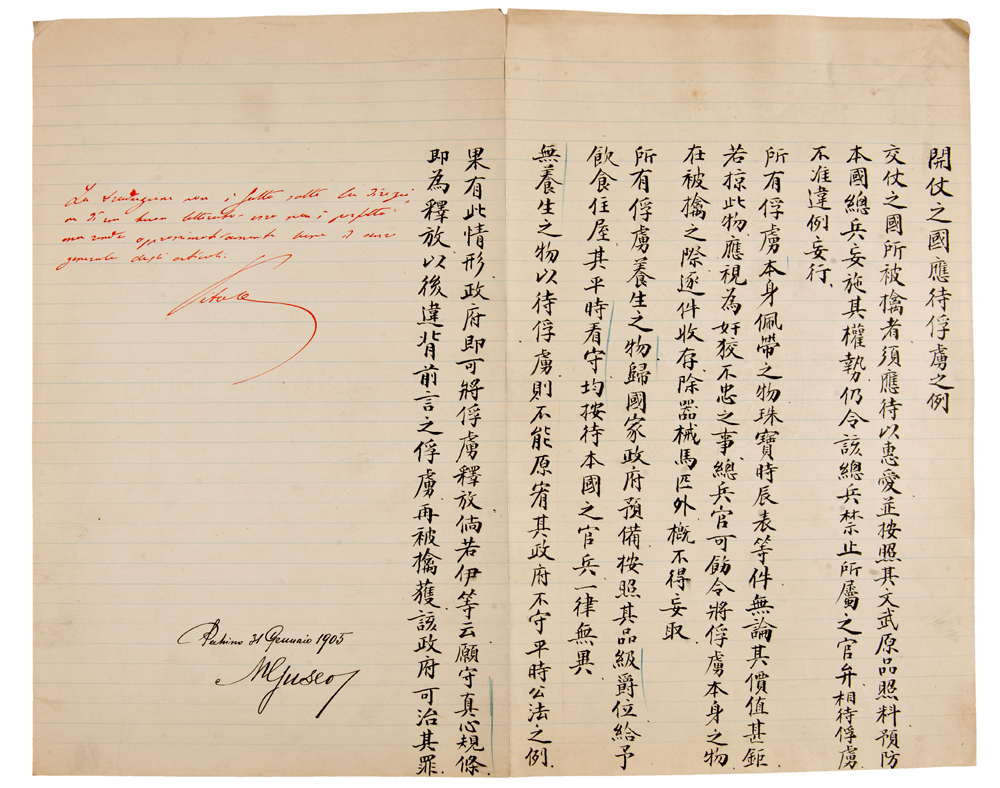 開仗之國應待俘虜之例
交仗之國所被擒者須應待以惠愛並按照其文武原品照料預防
本國總兵妄施其權勢仍令該總兵禁止所屬之官弁相待俘虜
不准違例妄行
所有俘虜本身佩帶之物珠寶時辰表等件無論其價值甚鉅
若掠此物應視為奸狡不忠之事總兵官可飭令將俘虜本身之物
在被擒之際逐件收存除器械馬匹外概不得妄取
所有俘虜養生之物歸國家政府預備按照其品級爵位給予
飲食住屋其平時看守均按待本國之官兵一律無異
無養生之物以待俘虜則不能原宥其政府不守平時公法之例
果有此情形政府即可將俘虜釋放倘若伊等云願守真心規條
即為釋放以後違背前言之俘虜再被擒獲該政府可治其罪
La traduzione non è fatta sotto la direzio
ne di un buon letterato. essa non è perfetta
ma rende approssimativamente bene il senso
generale degli articoli.
Vitale
Pechino 31 Gennaio 1905